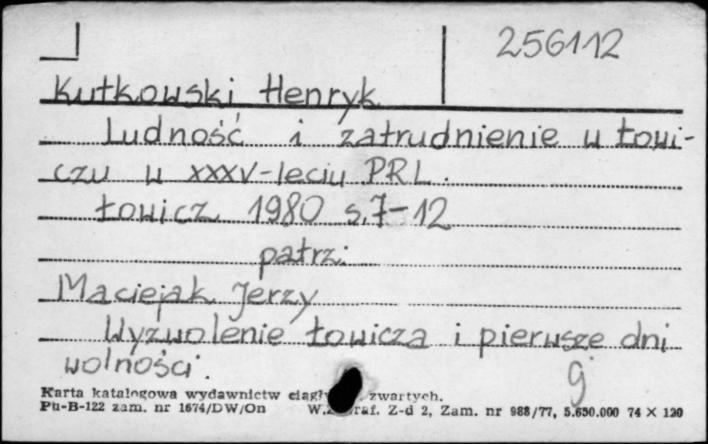 256112
Kutkowski Henryk
Ludność i zatrudnienie w Łowi-
czu w XXXV-leciu PRL.
Łowicz 1980 s.7-12
patrz:
Maciejak Jerzy
Wyzwolenie Łowicza i pierwsze dni
wolności.
g
Karta katalogowa wydawnictw zwartych.
Pu-B-122 zam. nr 1674/DW/On Z-d 2, Zam. nr 988/77, 5.650.000 74 × 120